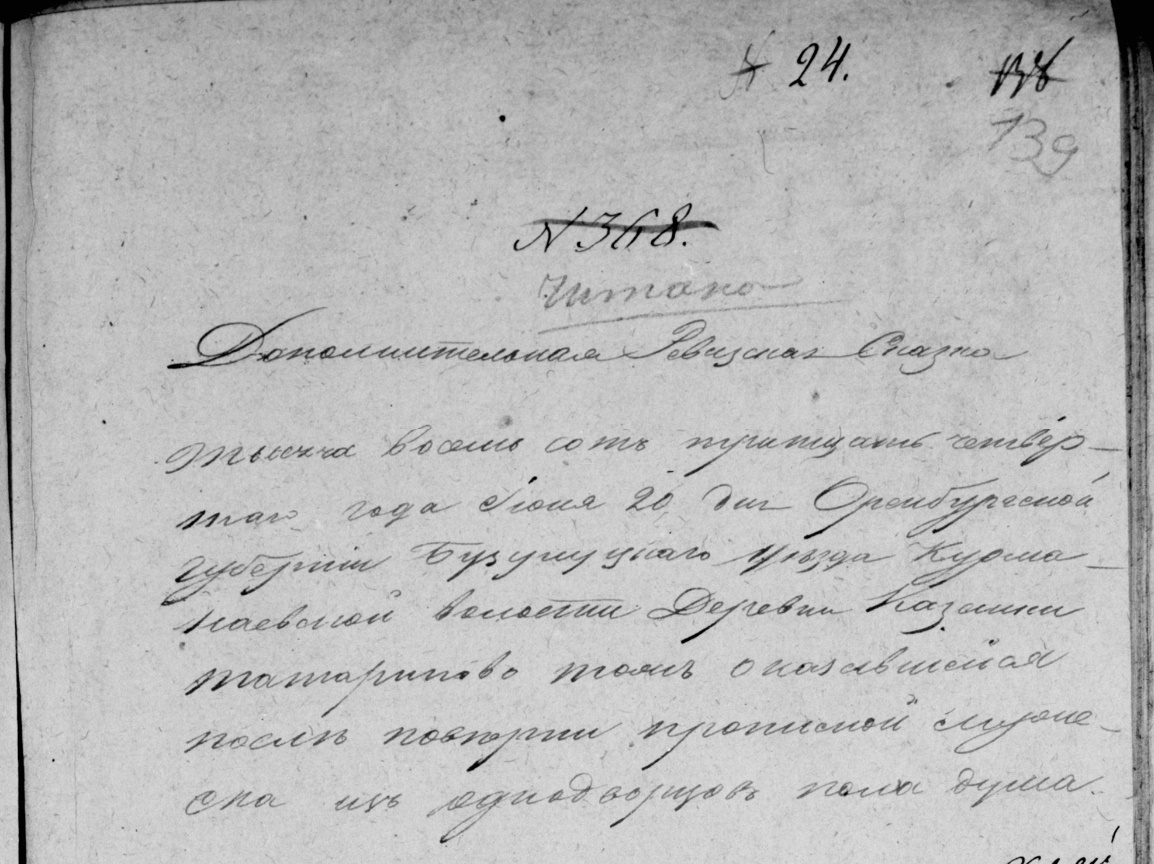 № 24. 138
139
№ 368.
Читано
Дополнительная Ревизская Сказка
Тысяча восемь сотъ тритцать четвёр-
таго года Июня 20 дня Оренбургской
губернии Бузулуцкаго уезда Курма-
наевской волости Деревни Казанки
татариново тожъ оказавшейся
после поверки прописной мужеска
ска изъ однодворцовъ пола душа.